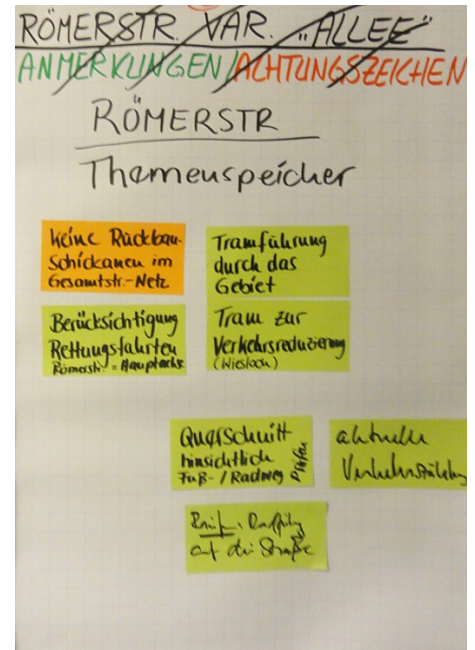 RÖMERSTR. VAR. „ALLEE"
ANMERKUNGEN/ACHTUNGSZEICHEN
RÖMERSTR
Themenspeicher
Keine Rückbau-
Schickanen im
Gesamtstr.-Netz
Tramführung
durch das
Gebiet
Berücksichtigung
Rettungsfahrten
Römerstr. = Hauptachse
Tram zur
Verkehrsreduzierung
(Wiesloch)
Querschnitt
hinsichtlich
Fuß-/Radweg
prüfen
aktuelle
Verkehrszählung
auf die Straße